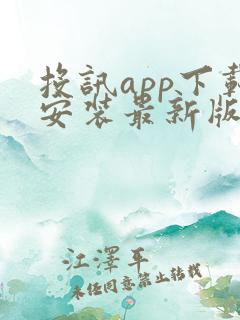 投訊app下載
安裝最新版
江澤平
未经同意禁止转载